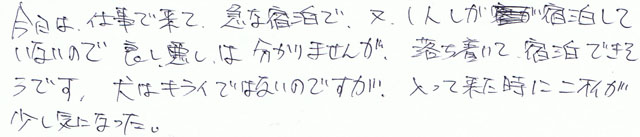 今回は、仕事で来て、急な宿泊で、又、1人しか宿泊して
いないので良し悪しは分かりませんが、落ち着いて宿泊できそ
うです。犬はキライではないのですが、入って来た時にニオイが
少し気になった。